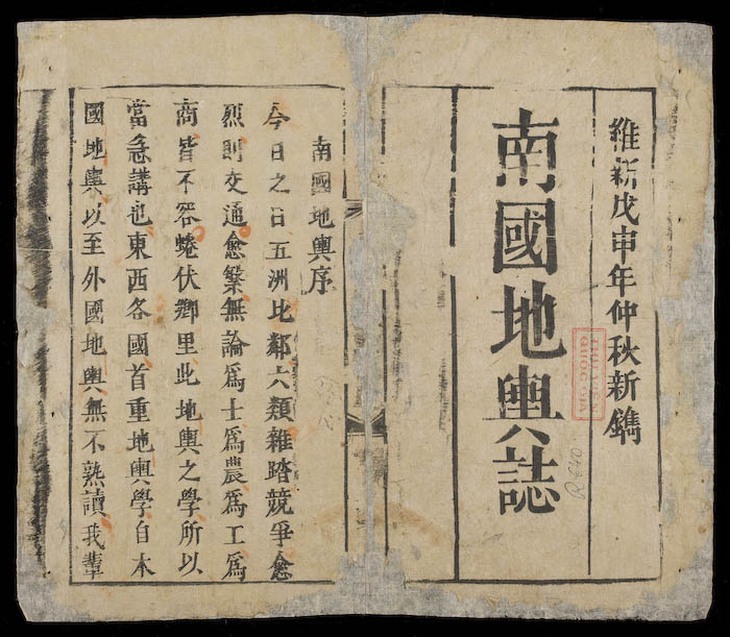 維新戊申年仲秋新鐫
南國地輿誌
THƯ VIỆN
QUỐC GIA
R 640
南國地輿序
今日之日五洲比鄰六類雜踏競爭愈
烈則交通愈繁無論為士為農為工為
商皆不容蜷伏鄉里此地輿之學所以
當急講也東西各國首重地輿學自本
國地輿以至外國地輿無不熟讀我輩